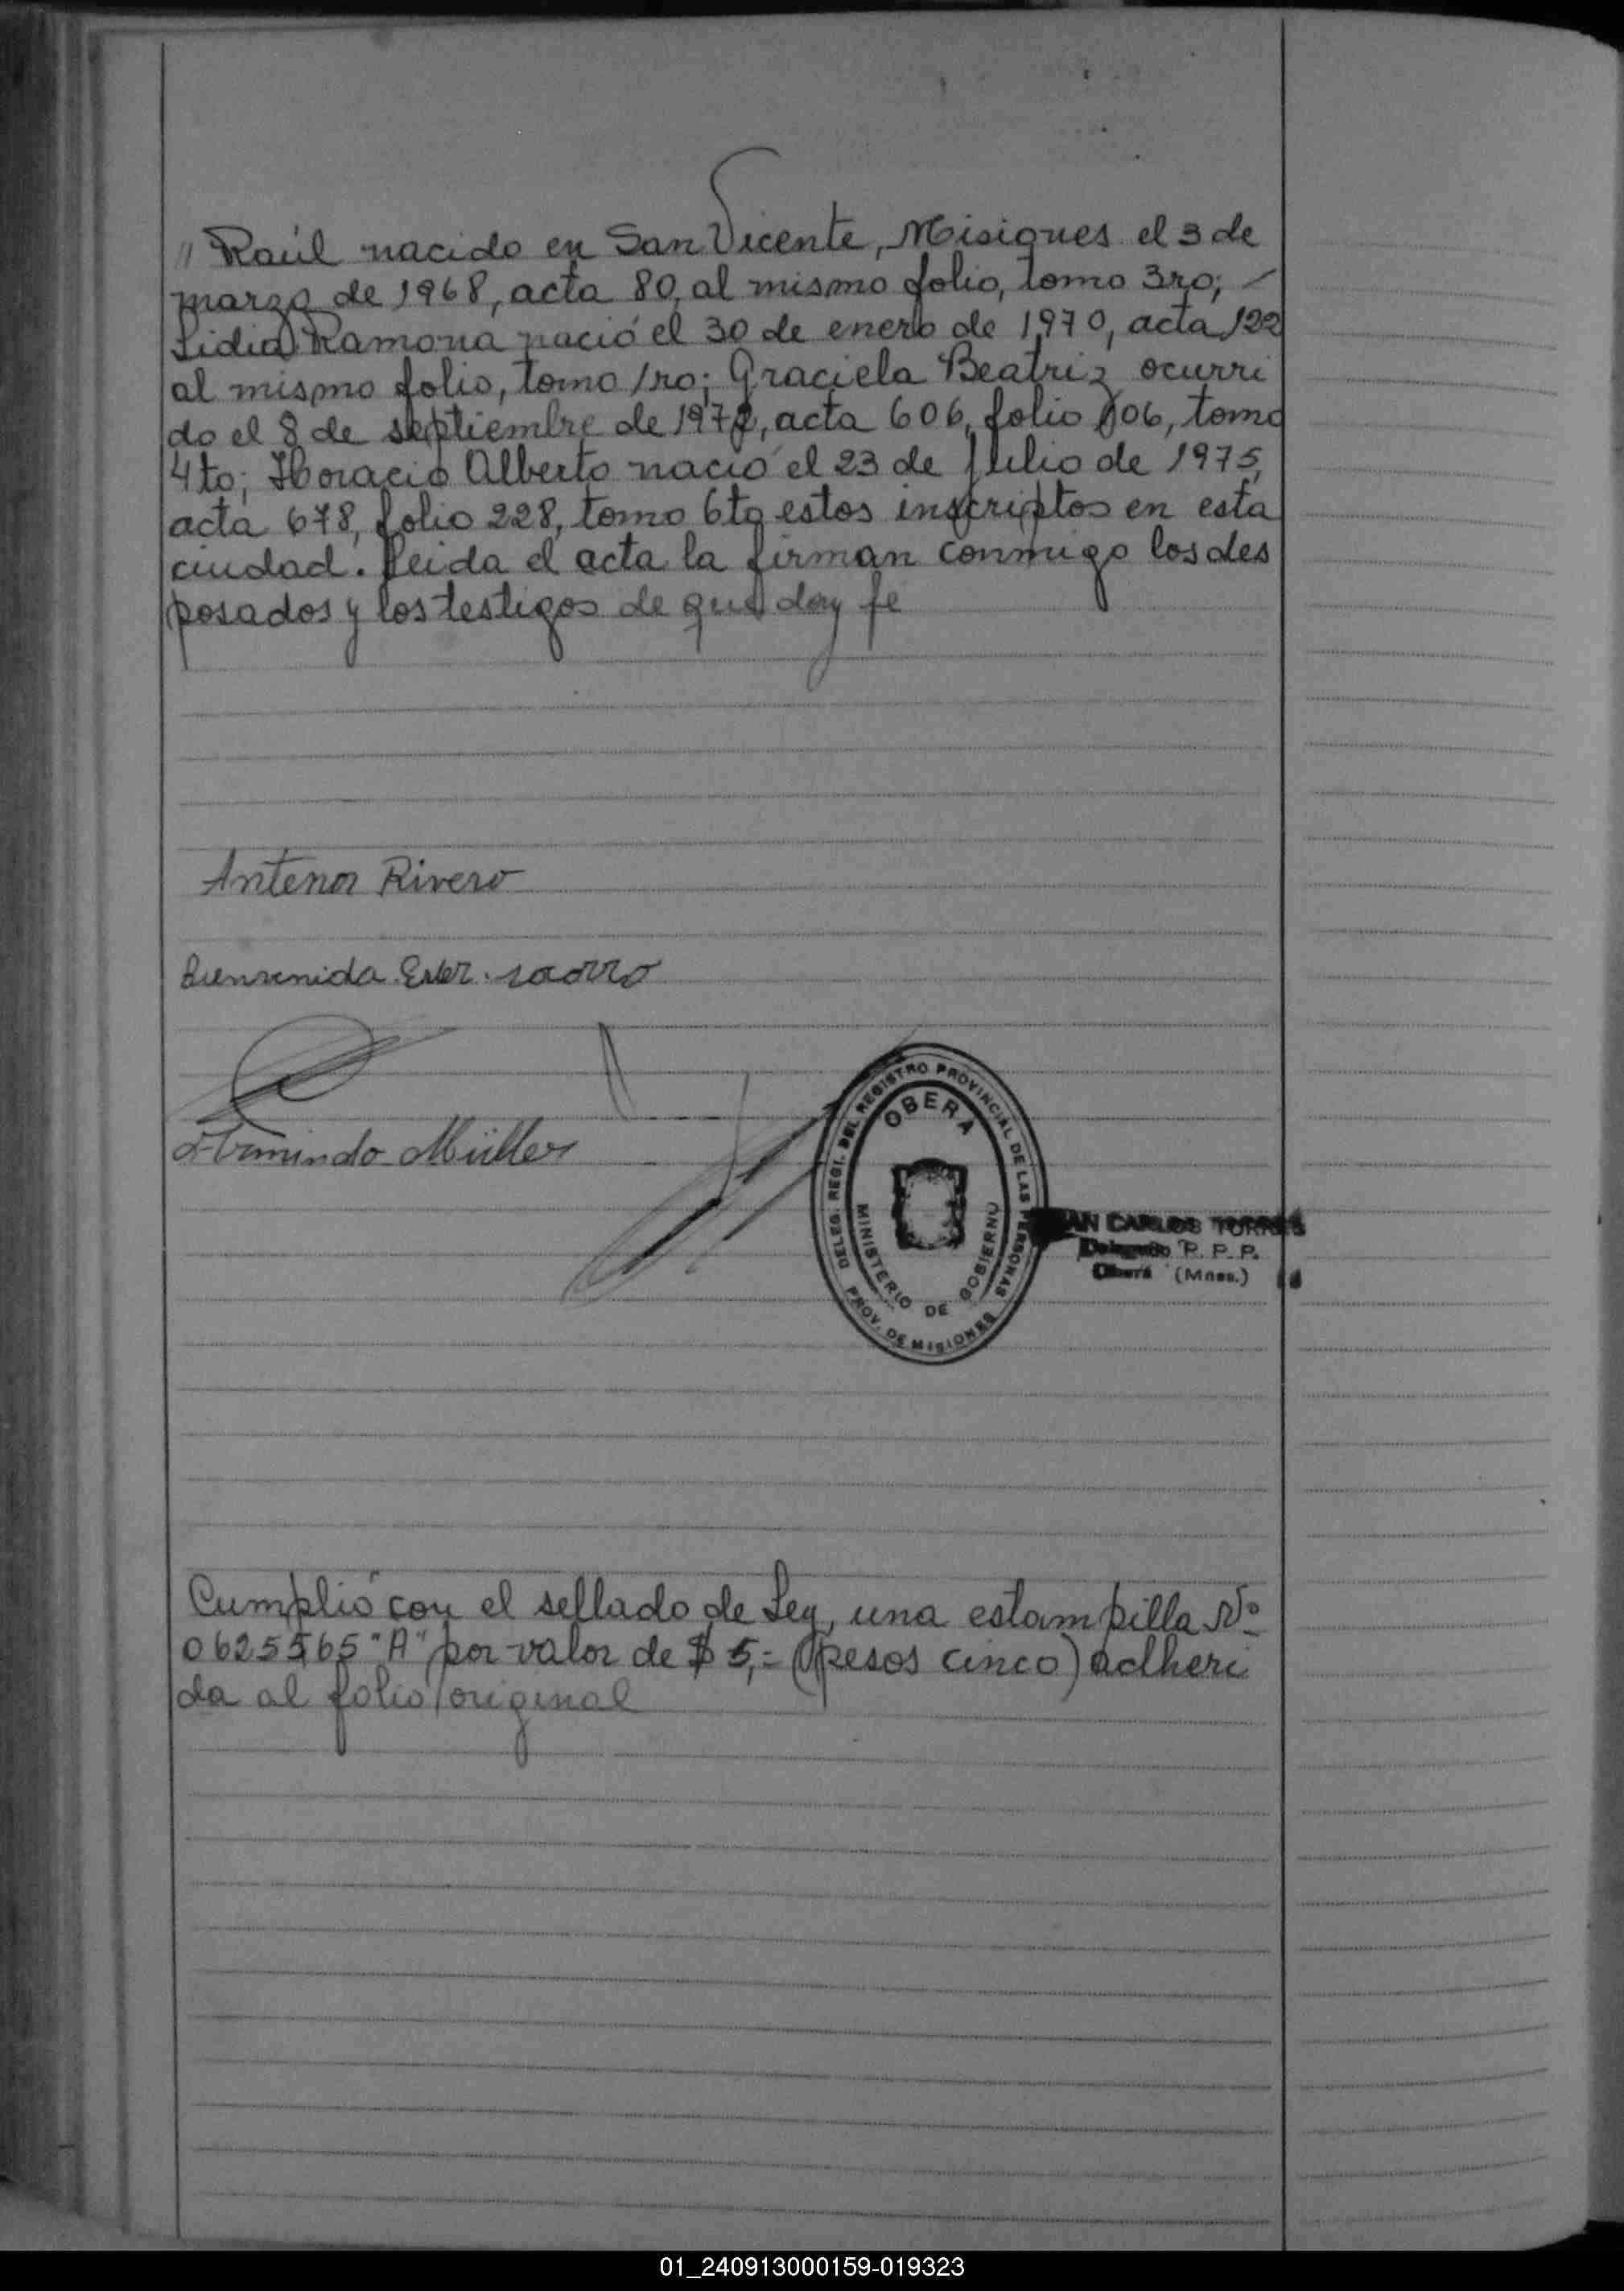 " Raúl nacido en San Vicente, Misiones el 3 de
marzo de 1968, acta 80, al mismo folio, tomo 3ro; -
Lidia Ramona nació el 30 de enero de 1970, acta 122
al mismo folio, tomo 1ro; Graciela Beatriz ocurri
do el 8 de septiembre de acta 606, folio tomo
4to; Horacio Alberto nació el 23 de Julio de 1975,
acta 678, folio 228, tomo 6to estos inscriptos en esta
ciudad. Leida el acta la firman conmigo los des
posados y los testigos de que doy fe
Antenor Rivero
Bienvenida Ester
Armindo Müller
DELEG. REGI. DEL REGISTRO PROVINCIAL DE LAS PERSONAS
OBERA
MINISTERIO DE GOBIERNO
PROV. DE MISIONES
AN CARLOS TORRES
Delegado R. P. P.
Oberá (Mnes.)
Cumplió con el sellado de Ley, una estampilla Nº
0625565 "A" por valor de $ 5,= (pesos cinco) adheri
da al folio original
01_240913000159-019323